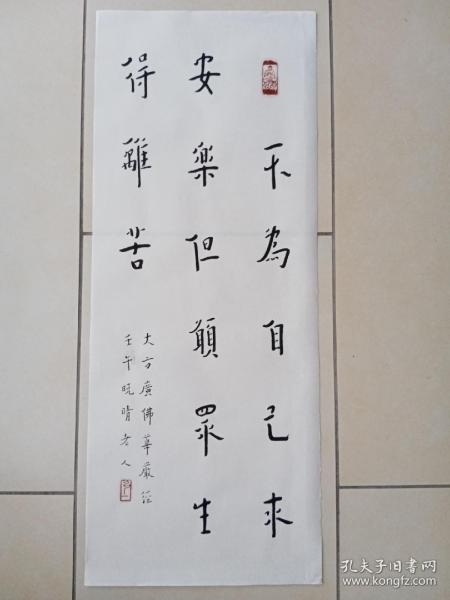 不為自己求
安樂但願眾生
得離苦
大方廣佛華嚴經
壬午晚晴老人
孔夫子旧书网
www.kongfz.com